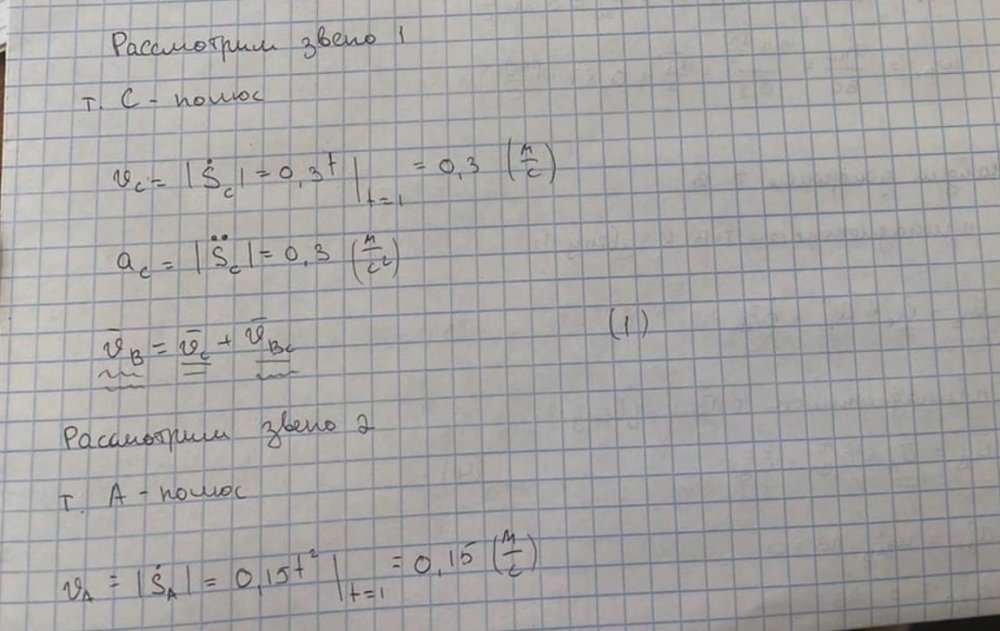 Рассмотрим звено 1
т. С - полюс
v_C = |Ṡ_C| = 0,3t |_{t=1} = 0,3 (м/с)
a_C = |S̈_C| = 0,3 (м/с²)
v̄_B = v̄_C + v̄_{BC} (1)
Рассмотрим звено 2
т. А - полюс
v_A = |Ṡ_A| = 0,15t² |_{t=1} = 0,15 (м/с)